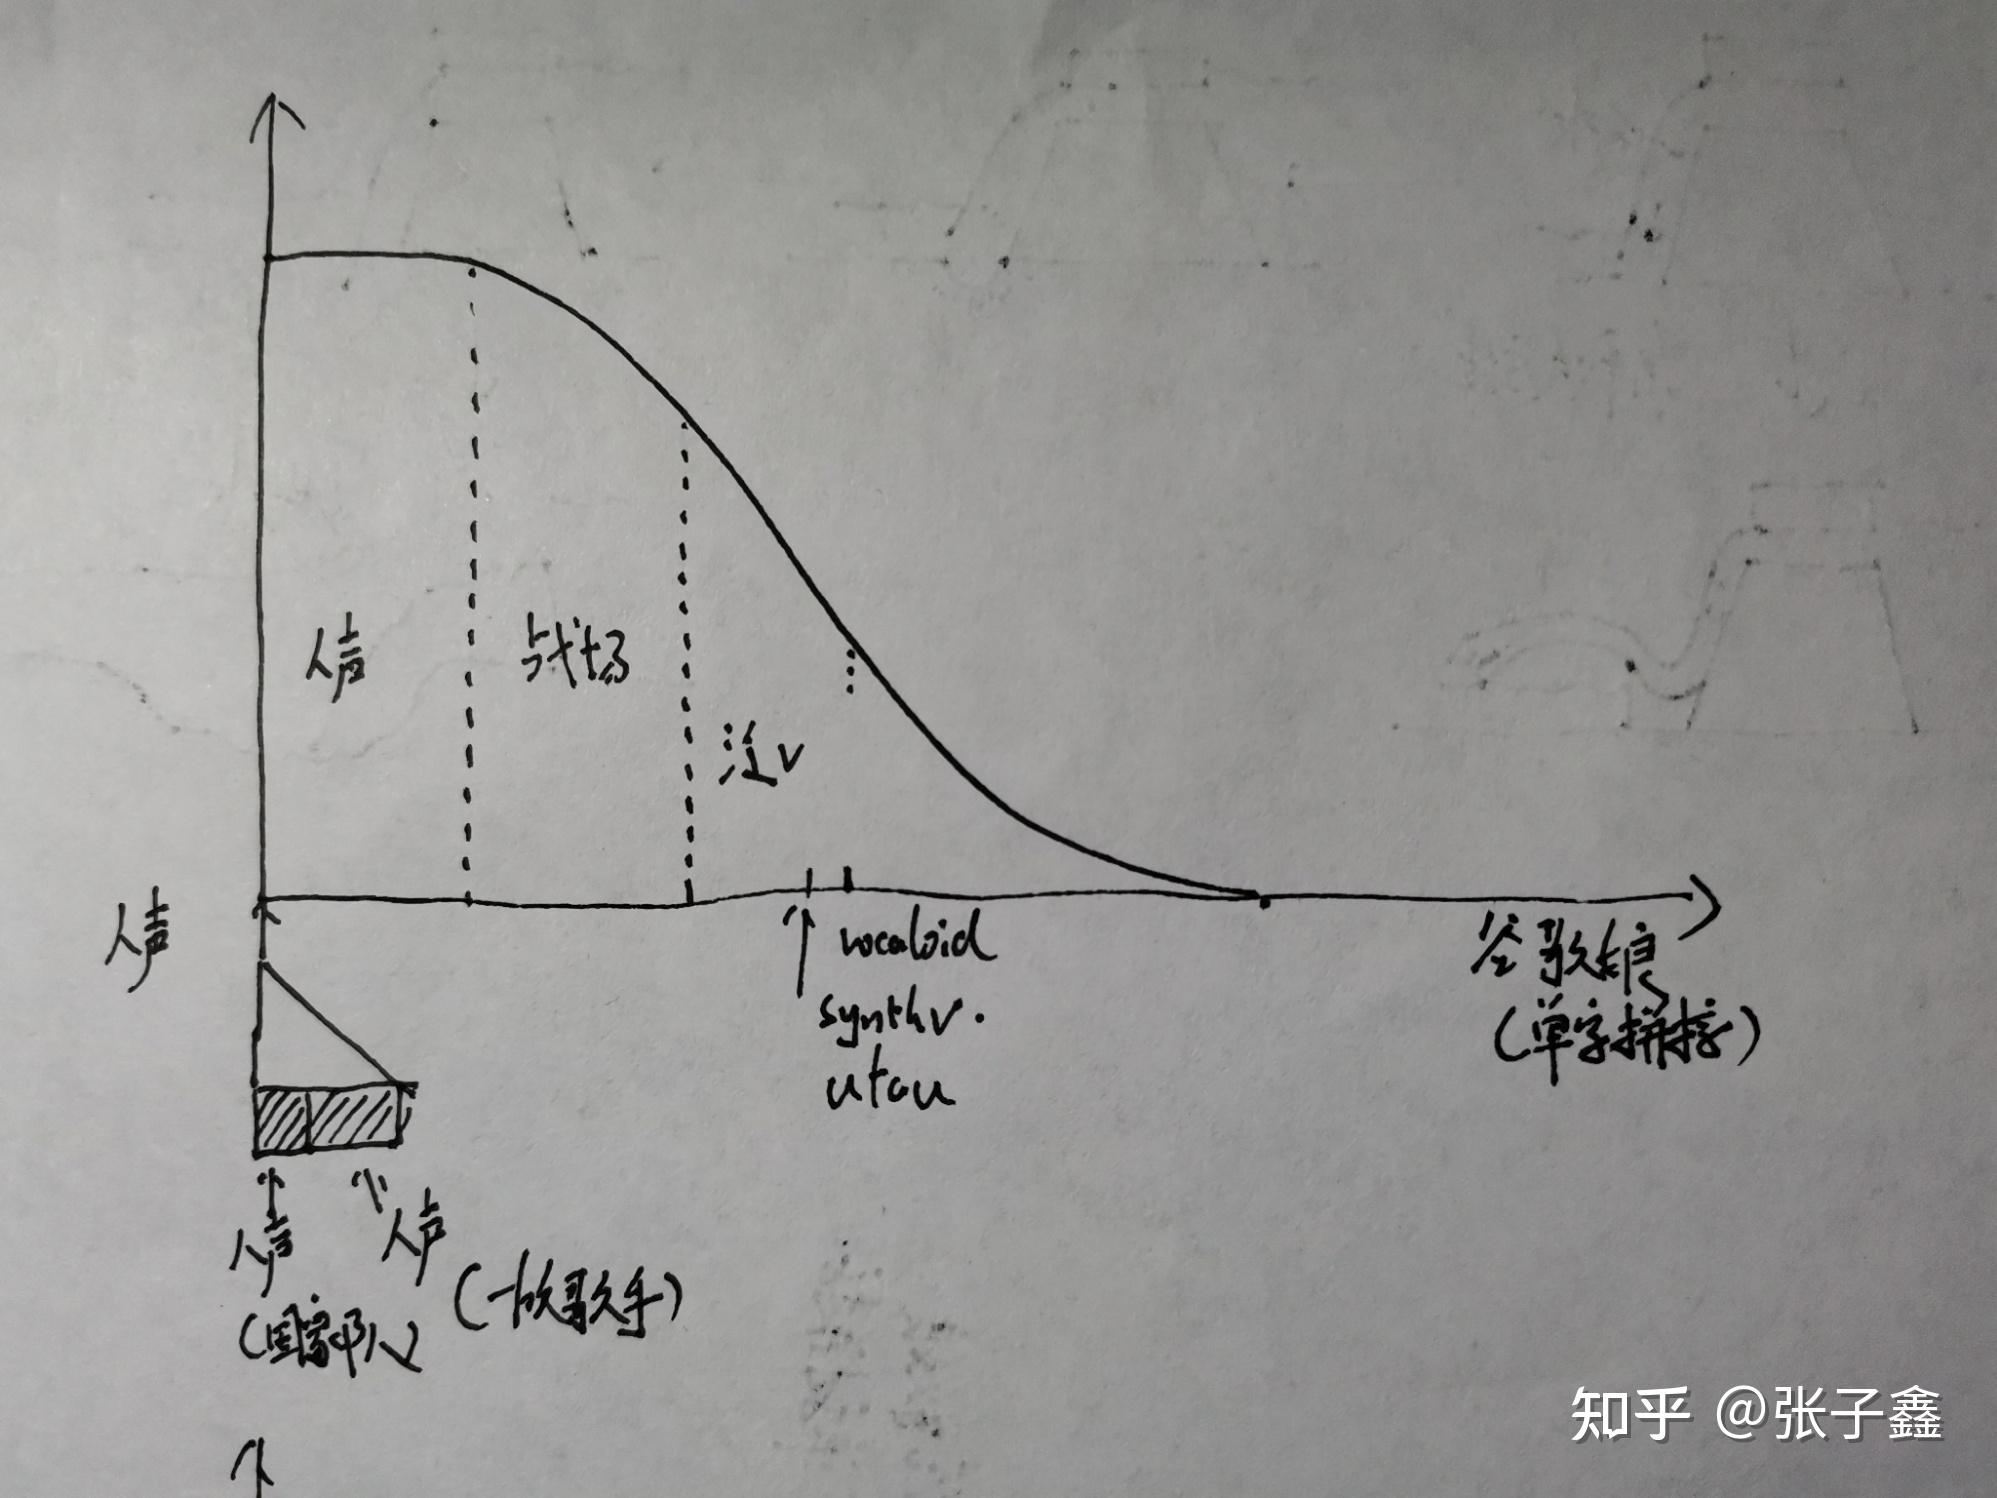 人声
战场
淫V
人声
vocaloid
synthv.
utau
谷歌娘
(单字拼接)
人声
(国家队)
人声
(一般歌手)
知乎 @张子鑫